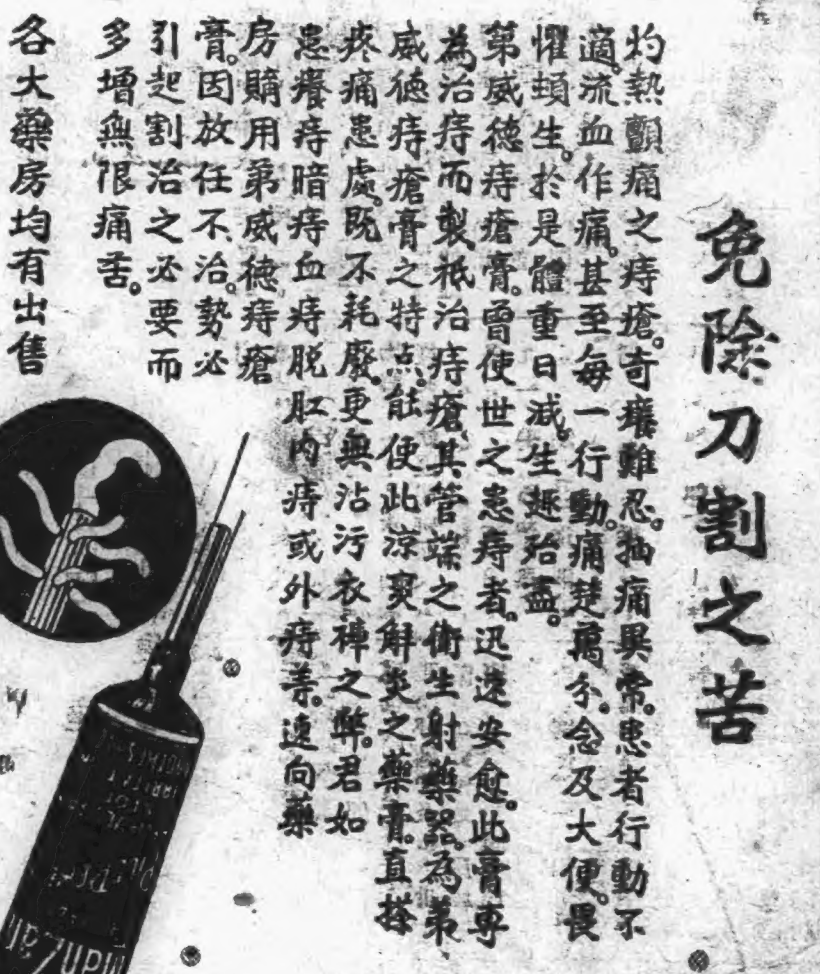 免除刀割之苦
灼熱顫痛之痔瘡。奇癢難忍。抽痛異常。患者行動不
適。流血作痛。甚至每一行動。痛楚萬分。念及大便。畏
懼頓生。於是體重日減。生趣殆盡。
第威德痔瘡膏。曾使世之患痔者。迅速安愈。此膏專
為治痔而製。祇治痔瘡。其管端之衛生射藥器。為第
威德痔瘡膏之特点。能使此涼爽解炎之藥膏。直搽
疼痛患處。既不耗廢。更無沾污衣褲之弊。君如
患癢痔暗痔血痔脫肛內痔或外痔等。速向藥
房購用第威德痔瘡
膏。因放任不治。勢必
引起割治之必要而
多增無限痛苦。
各大藥房均有出售
ManZan